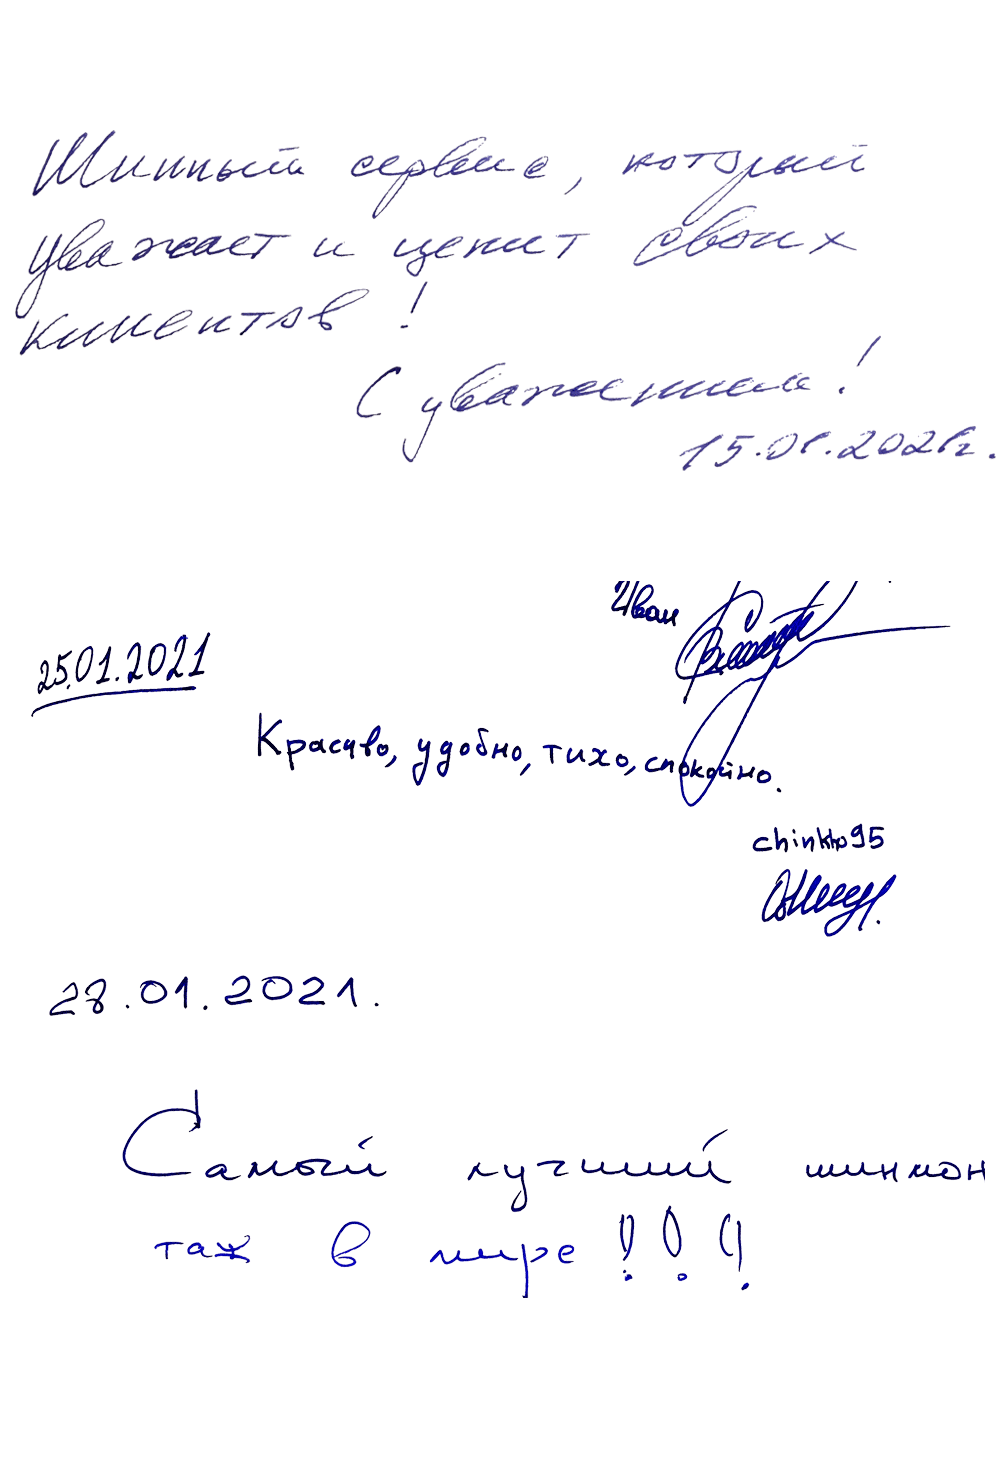 Шинный сервис, который
уважает и ценит своих
клиентов!
С уважением!
15.01.2021г.
Иван
25.01.2021
Красиво, удобно, тихо, спокойно.
chinkho95
28.01.2021.
Самый лучший шинмон
таж в мире!!!